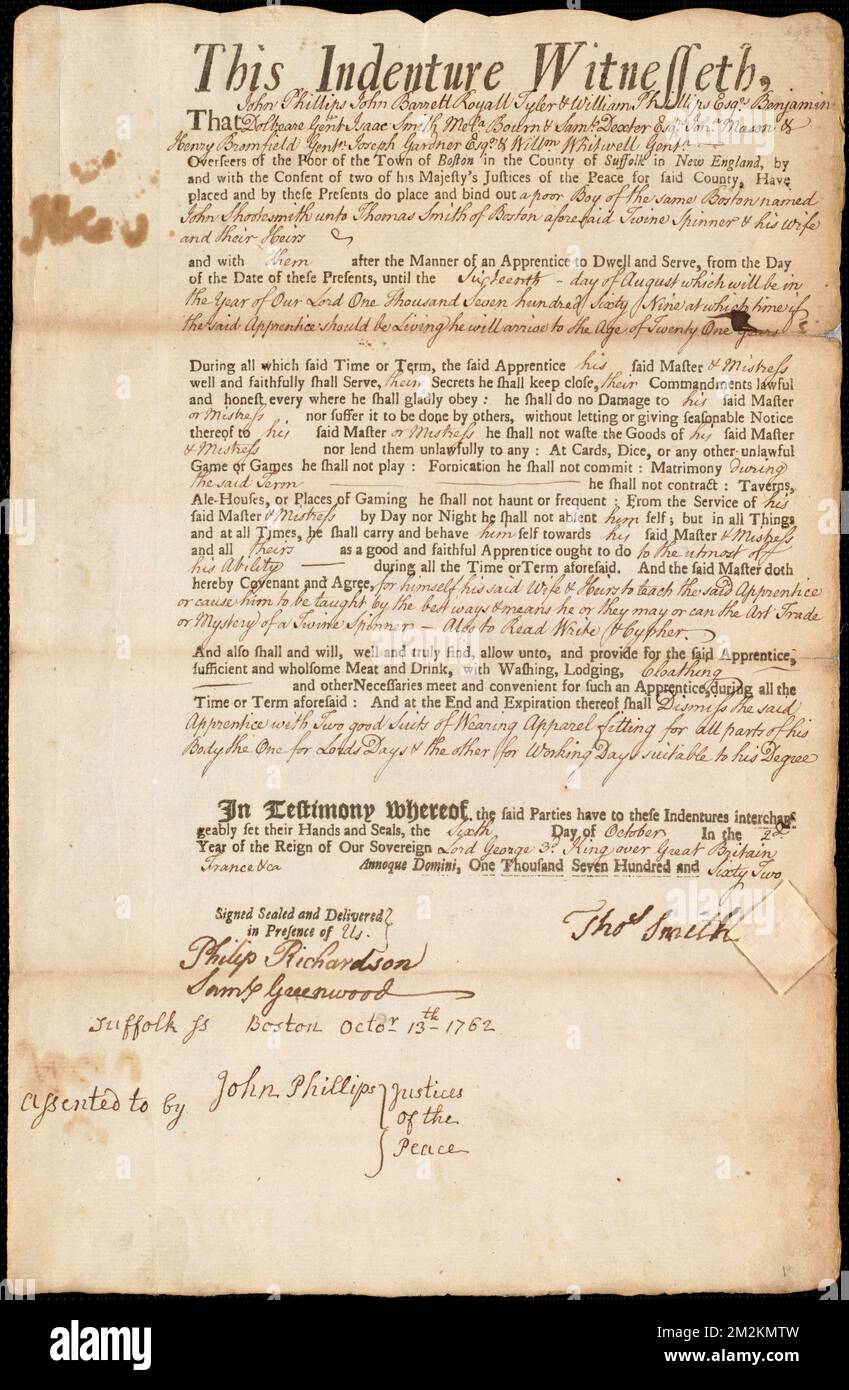 This Indenture Witnesseth,
John Phillips John Barrett Royall Tyler & William Phillips Esqrs. Benjamin
That Dolbeare Gent Isaac Smith, Mela. Bourn & Saml. Dexter Esqrs. Jona. Mason &
Henry Bromfield Gentn. Joseph Gardner Esqr. & Willm Whitwell Gentn.
Overseers of the Poor of the Town of Boston in the County of Suffolk in New England, by
and with the Consent of two of his Majesty's Justices of the Peace for said County, Have
placed and by these Presents do place and bind out a poor Boy of the same Boston named
John Shoresmith unto Thomas Smith of Boston aforesaid Twine Spinner & his Wife
and their Heirs
and with them after the Manner of an Apprentice to Dwell and Serve, from the Day
of the Date of these Presents, until the Sixteenth - day of August which will be in
the Year of Our Lord One Thousand Seven hundred Sixty Nine at which time if
the said Apprentice should be Living he will arrive to the Age of Twenty One Years
During all which said Time or Term, the said Apprentice his said Master & Mistress
well and faithfully shall Serve, their Secrets he shall keep close, their Commandments lawful
and honest every where he shall gladly obey : he shall do no Damage to his said Master
or Mistress nor suffer it to be done by others, without letting or giving seasonable Notice
thereof to his said Master or Mistress he shall not waste the Goods of his said Master
& Mistress nor lend them unlawfully to any : At Cards, Dice, or any other unlawful
Game or Games he shall not play : Fornication he shall not commit : Matrimony during
the said Term he shall not contract : Taverns,
Ale-Houses, or Places of Gaming he shall not haunt or frequent : From the Service of his
said Master & Mistress by Day nor Night he shall not absent him self ; but in all Things
and at all Times, he shall carry and behave him self towards his said Master & Mistress
and all theirs as a good and faithful Apprentice ought to do to the utmost of
his Ability during all the Time or Term aforesaid. And the said Master doth
hereby Covenant and Agree, for himself his said Wife & Heirs to teach the said Apprentice
or cause him to be taught by the best ways & means he or they may or can the Art Trade
or Mystery of a Twine Spinner - Also to Read Write & Cypher.
And also shall and will, well and truly find, allow unto, and provide for the said Apprentice,
sufficient and wholsome Meat and Drink, with Washing, Lodging, Cloathing
and other Necessaries meet and convenient for such an Apprentice, during all the
Time or Term aforesaid : And at the End and Expiration thereof shall Dismiss the said
Apprentice with Two good Suits of Wearing Apparel fitting for all parts of his
Body the One for Lords Days & the other for Working Days suitable to his Degree
In Testimony whereof, the said Parties have to these Indentures interchan-
geably set their Hands and Seals, the Sixth Day of October In the 2d.
Year of the Reign of Our Sovereign Lord George 3d. King over Great Britain
France &ca Annoque Domini, One Thousand Seven Hundred and Sixty Two
Signed Sealed and Delivered
in Presence of Us.
Thos Smith
Philip Richardson
Saml Greenwood
Suffolk ss Boston Octor. 13th - 1762
Assented to by John Phillips } Justices
of the
Peace
a alamy
alamy
Image ID: 2M2KMTW
www.alamy.com